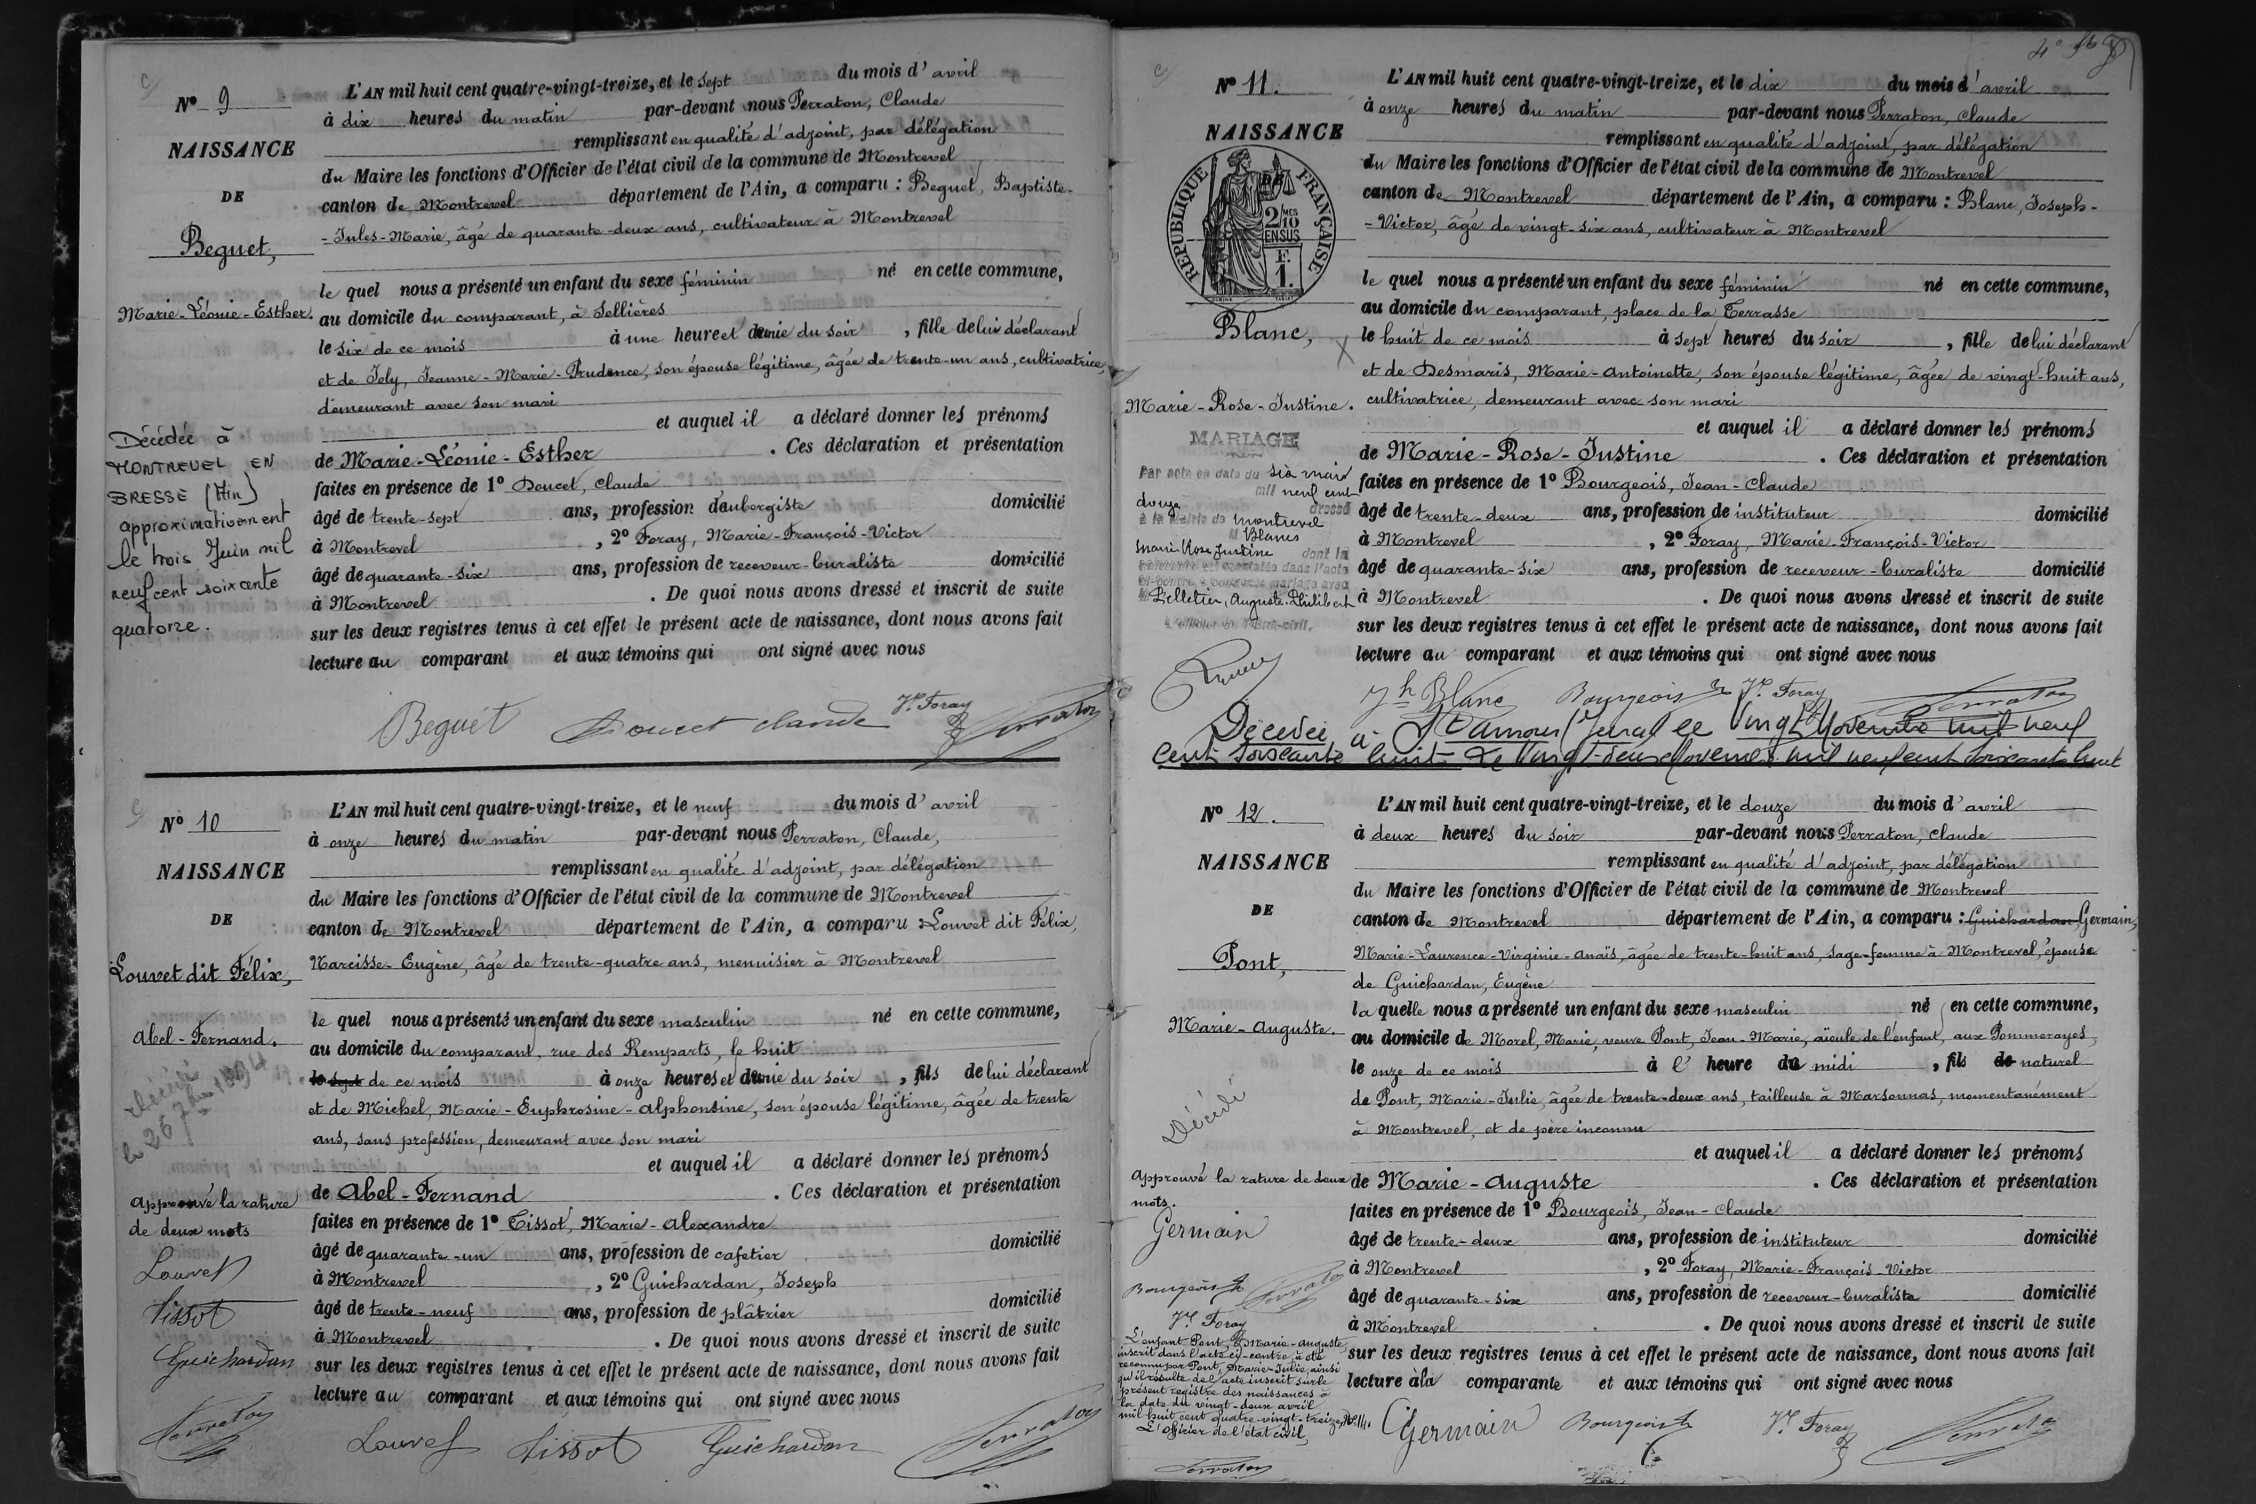 Nº 9
NAISSANCE
DE
Beguet,
Marie-Léonie-Esther.
Décédée à
MONTREVEL EN
BRESSE (Ain)
approximativement
le trois Juin mil
neuf cent soixante
quatorze.
L'AN mil huit cent quatre-vingt-treize, et le sept du mois d'avril
à dix heures du matin par-devant nous Perraton, Claude
remplissant en qualité d'adjoint, par délégation
du Maire les fonctions d'Officier de l'état civil de la commune de Montrevel
canton de Montrevel département de l'Ain, a comparu : Beguet, Baptiste-
-Jules-Marie, âgé de quarante-deux ans, cultivateur à Montrevel
le quel nous a présenté un enfant du sexe féminin né en cette commune,
au domicile du comparant, à Sellières
le six de ce mois à une heure et demie du soir, fille de lui déclarant
et de Joly, Jeanne-Marie-Prudence, son épouse légitime, âgée de trente-un ans, cultivatrice,
demeurant avec son mari
et auquel il a déclaré donner les prénoms
de Marie-Léonie-Esther. Ces déclaration et présentation
faites en présence de 1º Doucet, Claude
âgé de trente-sept ans, profession d'aubergiste domicilié
à Montrevel, 2º Foray, Marie-François-Victor
âgé de quarante-six ans, profession de receveur-buraliste domicilié
à Montrevel. De quoi nous avons dressé et inscrit de suite
sur les deux registres tenus à cet effet le présent acte de naissance, dont nous avons fait
lecture au comparant et aux témoins qui ont signé avec nous
Beguet Doucet claude Vr Foray Perraton
Nº 10
NAISSANCE
DE
Louvet dit Félix,
Abel-Fernand.
décédé
le 26 7bre 1894
Approuvé la rature
de deux mots
Louvet
Tissot
Guichardan
Perraton
L'AN mil huit cent quatre-vingt-treize, et le neuf du mois d'avril
à onze heures du matin par-devant nous Perraton, Claude,
remplissant en qualité d'adjoint, par délégation
du Maire les fonctions d'Officier de l'état civil de la commune de Montrevel
canton de Montrevel département de l'Ain, a comparu : Louvet dit Félix,
Narcisse-Eugène, âgé de trente-quatre ans, menuisier à Montrevel
le quel nous a présenté un enfant du sexe masculin né en cette commune,
au domicile du comparant, rue des Remparts, le huit
le sept de ce mois à onze heures et demie du soir, fils de lui déclarant
et de Michel, Marie-Euphrosine-Alphonsine, son épouse légitime, âgée de trente
ans, sans profession, demeurant avec son mari
et auquel il a déclaré donner les prénoms
de Abel-Fernand. Ces déclaration et présentation
faites en présence de 1º Tissot, Marie-Alexandre
âgé de quarante-un ans, profession de cafetier domicilié
à Montrevel, 2º Guichardan, Joseph
âgé de trente-neuf ans, profession de plâtrier domicilié
à Montrevel. De quoi nous avons dressé et inscrit de suite
sur les deux registres tenus à cet effet le présent acte de naissance, dont nous avons fait
lecture au comparant et aux témoins qui ont signé avec nous
Louvet Tissot Guichardan Perraton
Nº 11.
NAISSANCE
RÉPUBLIQUE FRANÇAISE
2/10 MES
EN SUS
F.
1.
Blanc,
Marie-Rose-Justine.
MARIAGE
Par acte en date du six mars
mil neuf cent
douze dressé
à la Mairie de Montrevel
Blanc
Marie Rose Justine dont la
naissance est constatée dans l'acte
ci-contre, a contracté mariage avec
Pelletier, Auguste-Philibert
L'officier de l'état-civil.
L'AN mil huit cent quatre-vingt-treize, et le dix du mois d'avril
à onze heures du matin par-devant nous Perraton, Claude
remplissant en qualité d'adjoint, par délégation
du Maire les fonctions d'Officier de l'état civil de la commune de Montrevel
canton de Montrevel département de l'Ain, a comparu : Blanc, Joseph-
-Victor, âgé de vingt-six ans, cultivateur à Montrevel
le quel nous a présenté un enfant du sexe féminin né en cette commune,
au domicile du comparant, place de la Terrasse
le huit de ce mois à sept heures du soir, fille de lui déclarant
et de Desmaris, Marie-Antoinette, son épouse légitime, âgée de vingt-huit ans,
cultivatrice, demeurant avec son mari
et auquel il a déclaré donner les prénoms
de Marie-Rose-Justine. Ces déclaration et présentation
faites en présence de 1º Bourgeois, Jean-Claude
âgé de trente-deux ans, profession de instituteur domicilié
à Montrevel, 2º Foray, Marie-François-Victor
âgé de quarante-six ans, profession de receveur-buraliste domicilié
à Montrevel. De quoi nous avons dressé et inscrit de suite
sur les deux registres tenus à cet effet le présent acte de naissance, dont nous avons fait
lecture au comparant et aux témoins qui ont signé avec nous
Jh Blanc Bourgeois Vr Foray Perraton
Décédée à St Amour (Jura) le Vingt Novembre mil neuf
cent soixante huit - Le Vingt-deux Novembre mil neuf cent soixante huit
Nº 12.
NAISSANCE
DE
Pont,
Marie-Auguste.
Décédé
Approuvé la rature de deux
mots.
Germain
Bourgeois Perraton
Vr Foray
L'enfant Pont, Marie-Auguste
inscrit dans l'acte ci-contre, a été
reconnu par Pont, Marie-Julie, ainsi
qu'il résulte de l'acte inscrit sur le
présent registre des naissances à
la date du vingt-deux avril
mil huit cent quatre-vingt-treize, Nº 14.
L'officier de l'état civil,
Perraton
L'AN mil huit cent quatre-vingt-treize, et le douze du mois d'avril
à deux heures du soir par-devant nous Perraton, Claude
remplissant en qualité d'adjoint, par délégation
du Maire les fonctions d'Officier de l'état civil de la commune de Montrevel
canton de Montrevel département de l'Ain, a comparu : Guichardan Germain,
Marie-Laurence-Virginie-Anaïs, âgée de trente-huit ans, sage-femme à Montrevel, épouse
de Guichardan, Eugène
la quelle nous a présenté un enfant du sexe masculin né en cette commune,
au domicile de Morel, Marie, veuve Pont, Jean-Marie, aïeule de l'enfant, aux Pommerayes,
le onze de ce mois à l' heure du midi, fils de naturel
de Pont, Marie-Julie, âgée de trente-deux ans, tailleuse à Marsonnas, momentanément
à Montrevel, et de père inconnu
et auquel il a déclaré donner les prénoms
de Marie-Auguste. Ces déclaration et présentation
faites en présence de 1º Bourgeois, Jean-Claude
âgé de trente-deux ans, profession de instituteur domicilié
à Montrevel, 2º Foray, Marie-François-Victor
âgé de quarante-six ans, profession de receveur-buraliste domicilié
à Montrevel. De quoi nous avons dressé et inscrit de suite
sur les deux registres tenus à cet effet le présent acte de naissance, dont nous avons fait
lecture à la comparante et aux témoins qui ont signé avec nous
Germain Bourgeois Vr Foray Perraton